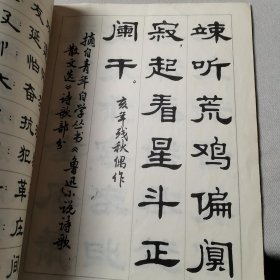 竦听荒鸡偏阒
寂起看星斗正
阑干。
亥年残秋偶作
摘自青年自学丛书《鲁迅小说诗歌
散文选》诗歌部分
延怕奋抗犯革庄